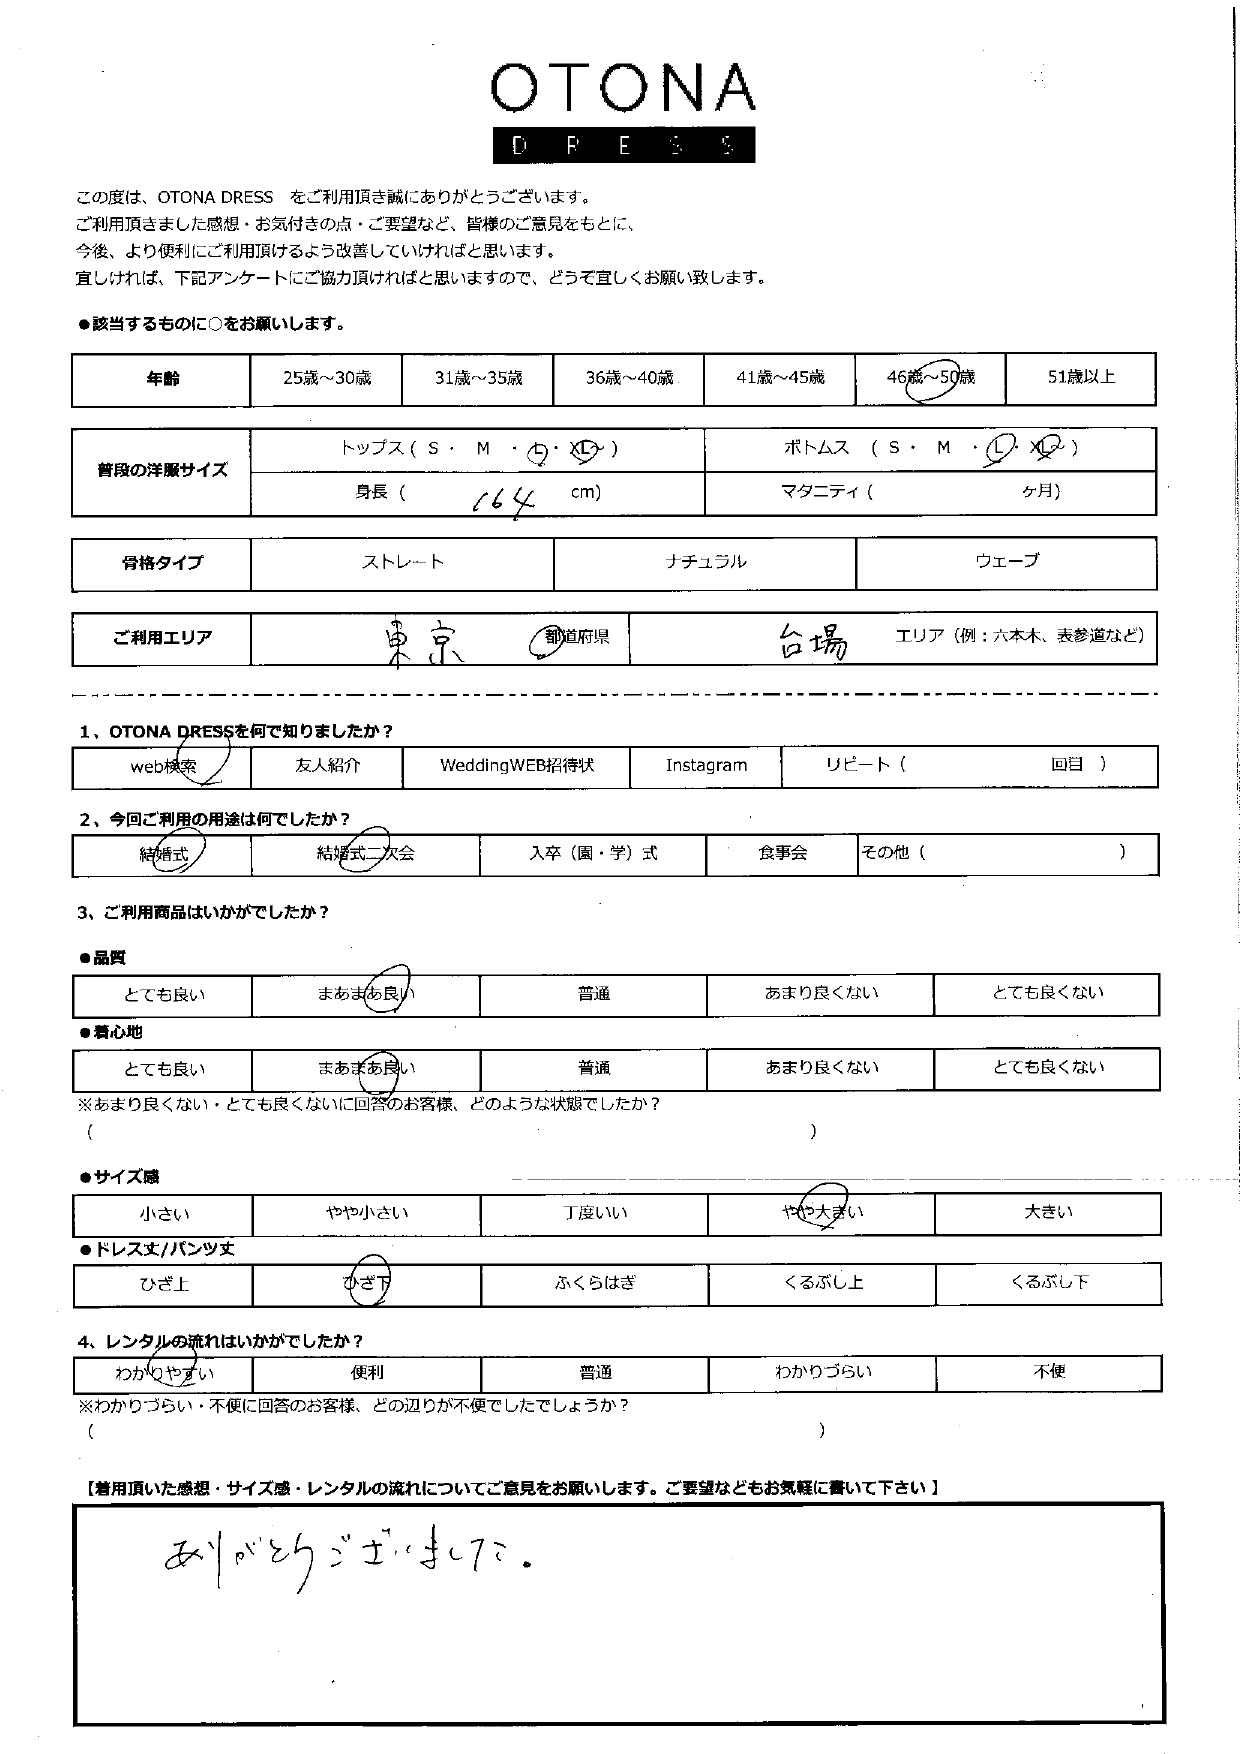 OTONA
DRESS
この度は、OTONA DRESS をご利用頂き誠にありがとうございます。
ご利用頂きました感想・お気付きの点・ご要望など、皆様のご意見をもとに、
今後、より便利にご利用頂けるよう改善していければと思います。
宜しければ、下記アンケートにご協力頂ければと思いますので、どうぞ宜しくお願い致します。
●該当するものに○をお願いします。
年齢 25歳～30歳 31歳～35歳 36歳～40歳 41歳～45歳 46歳～50歳 51歳以上
普段の洋服サイズ トップス ( S ・ M ・ L ・ XL～ ) ボトムス ( S ・ M ・ L ・ XL～ )
身長 ( 164 cm) マタニティ ( ケ月)
骨格タイプ ストレート ナチュラル ウェーブ
ご利用エリア 東京 都道府県 台場 エリア（例：六本木、表参道など）
1、OTONA DRESSを何で知りましたか？
web検索 友人紹介 WeddingWEB招待状 Instagram リピート ( 回目 )
2、今回ご利用の用途は何でしたか？
結婚式 結婚式二次会 入卒（園・学）式 食事会 その他 ( )
3、ご利用商品はいかがでしたか？
●品質
とても良い まあまあ良い 普通 あまり良くない とても良くない
●着心地
とても良い まあまあ良い 普通 あまり良くない とても良くない
※あまり良くない・とても良くないに回答のお客様、どのような状態でしたか？
( )
●サイズ感
小さい やや小さい 丁度いい やや大きい 大きい
●ドレス丈/パンツ丈
ひざ上 ひざ下 ふくらはぎ くるぶし上 くるぶし下
4、レンタルの流れはいかがでしたか？
わかりやすい 便利 普通 わかりづらい 不便
※わかりづらい・不便に回答のお客様、どの辺りが不便でしたでしょうか？
( )
【着用頂いた感想・サイズ感・レンタルの流れについてご意見をお願いします。ご要望などもお気軽に書いて下さい】
ありがとうございました。